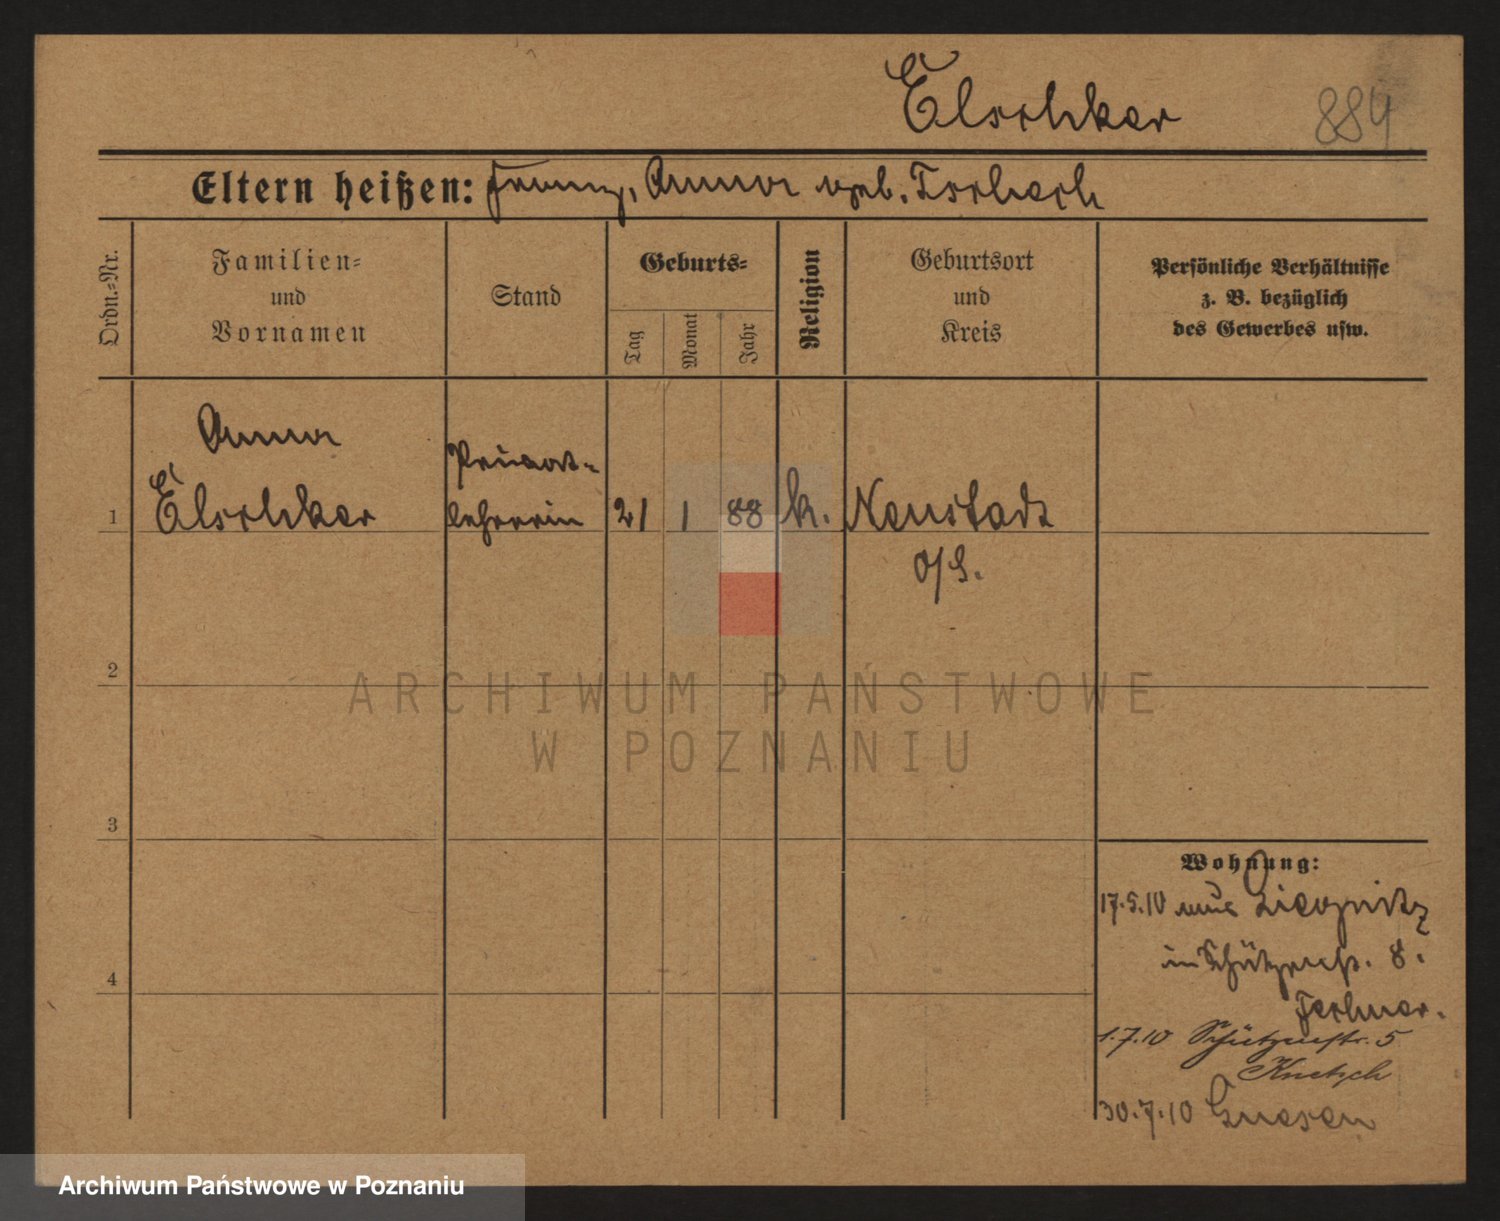 Elschker
884
Eltern heißen: Franz, Anna geb.
Ordn.-Nr.
Familien-
und
Vornamen
Stand
Geburts-
Tag
Monat
Jahr
Religion
Geburtsort
und
Kreis
Persönliche Verhältnisse
z. B. bezüglich
des Gewerbes usw.
Anna
Privat-
1 Elschker lehrerin 21 1 88 k. Neustadt
O/S.
2
ARCHIWUM PAŃSTWOWE
W POZNANIU
3
Wohnung:
17.5.10 aus Liegnitz
in Schützenstr. 8.
4
1.7.10 Schützenstr. 5
30.7.10 Gnesen
Archiwum Państwowe w Poznaniu